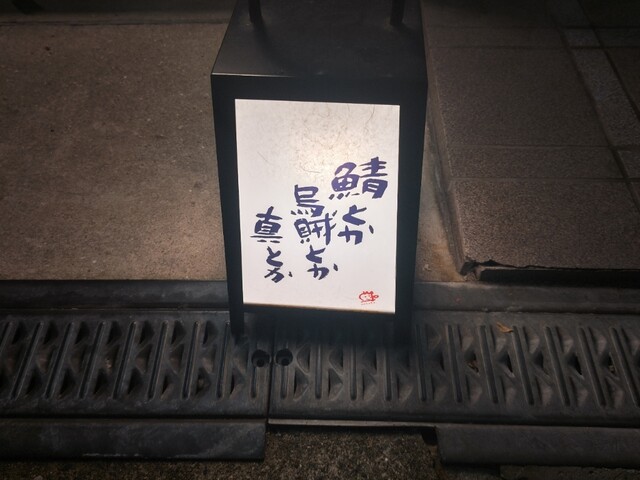 鯖とか
烏賊とか
真とか